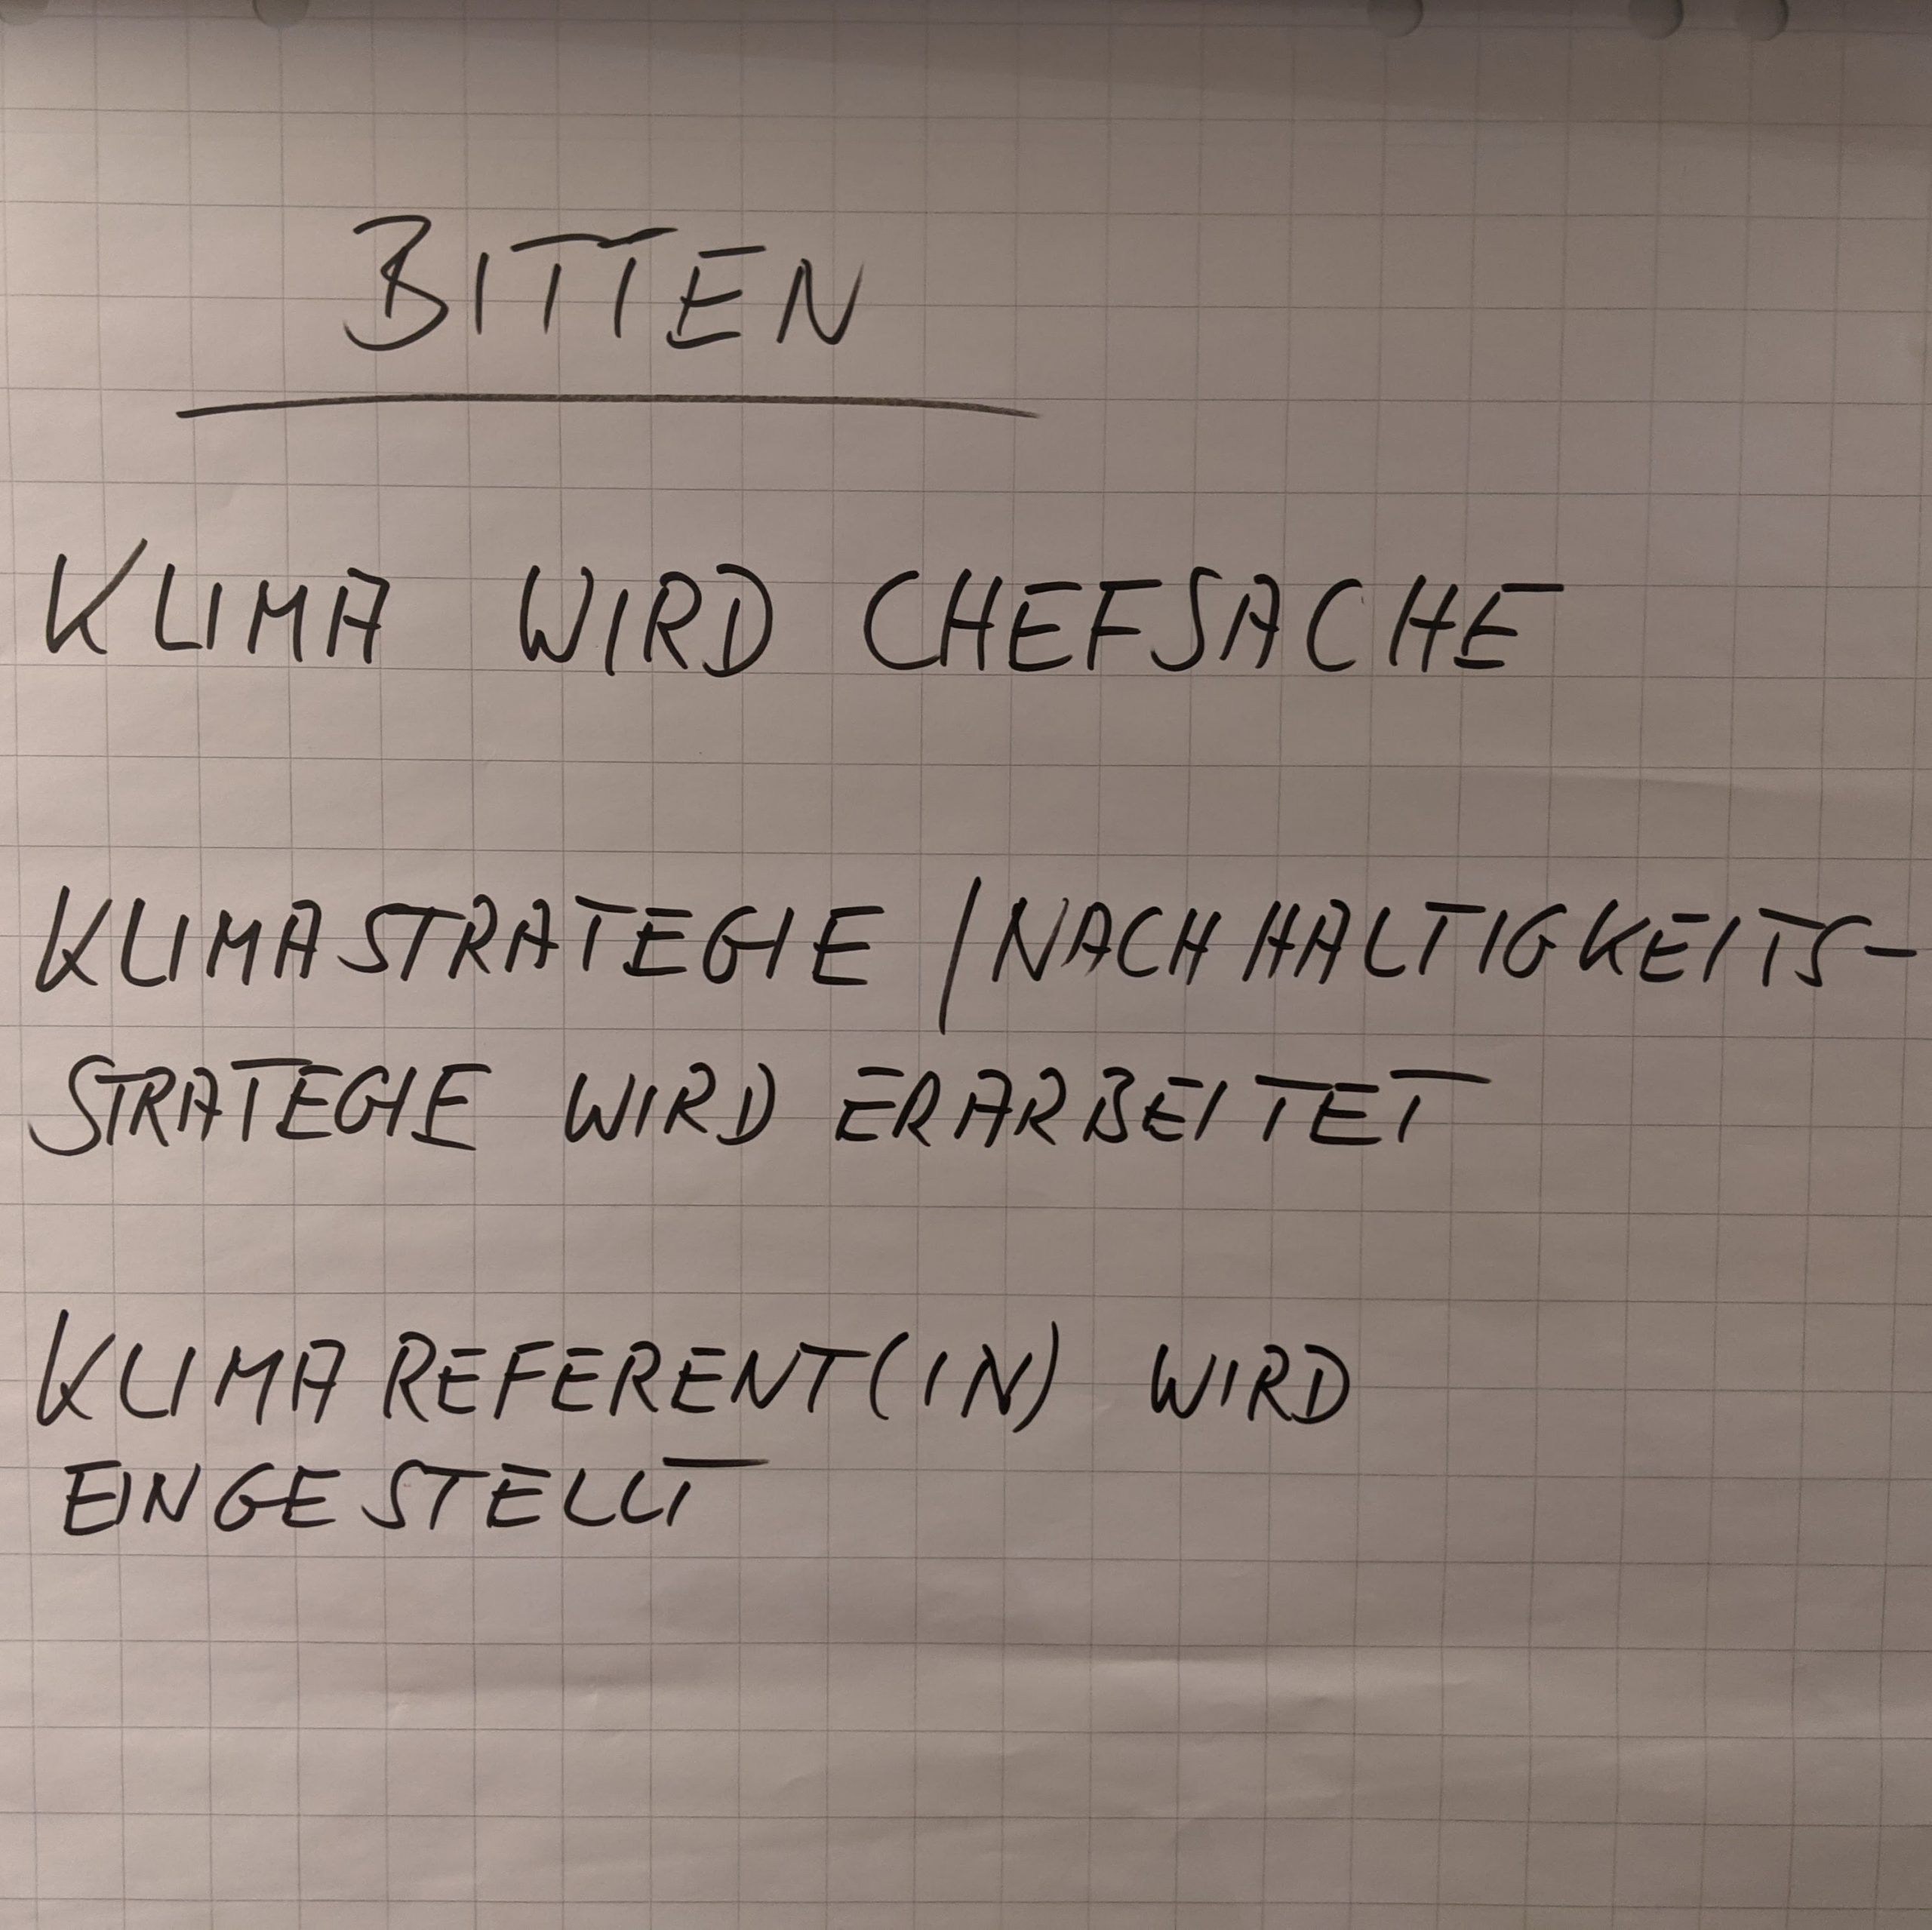 BITTEN
KLIMA WIRD CHEFSACHE
KLIMASTRATEGIE / NACHHALTIGKEITS-
STRATEGIE WIRD ERARBEITET
KLIMAREFERENT(IN) WIRD
EINGESTELLT